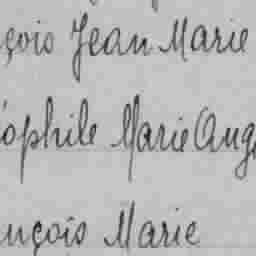 çois Jean Marie
ophile Marie Ang
nçois Marie